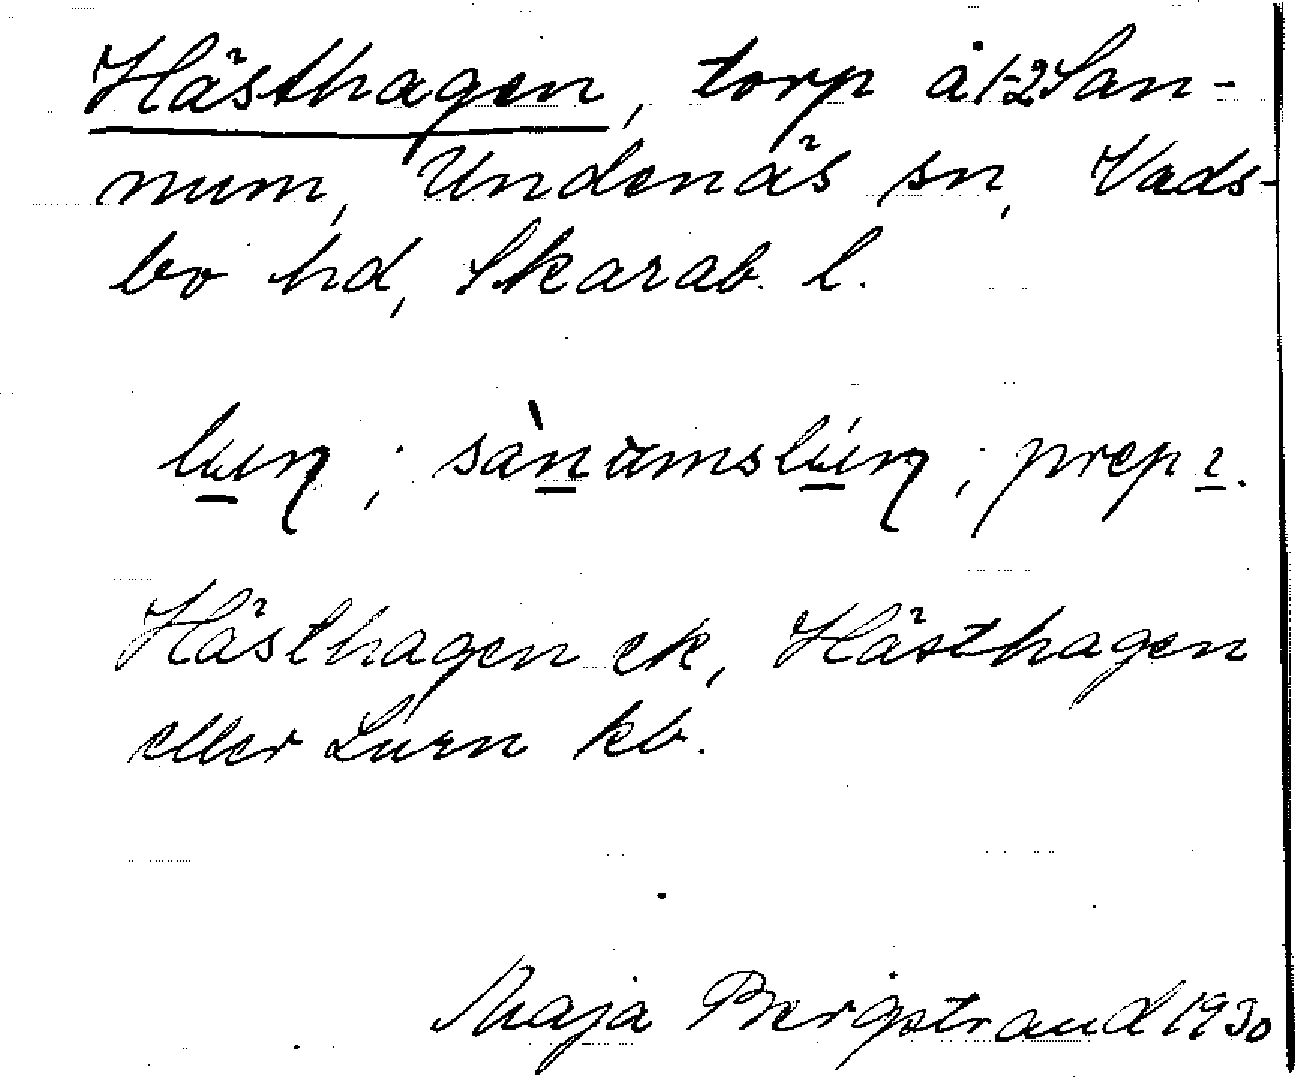 Hästhagen, torp å 1-2 San-
num, Undenäs sn, Vads-
bo hd, Skarab. l.
prep ı.
Hästhagen ek, Hästhagen
eller Luren kb.
Maja Bergstrand 1930